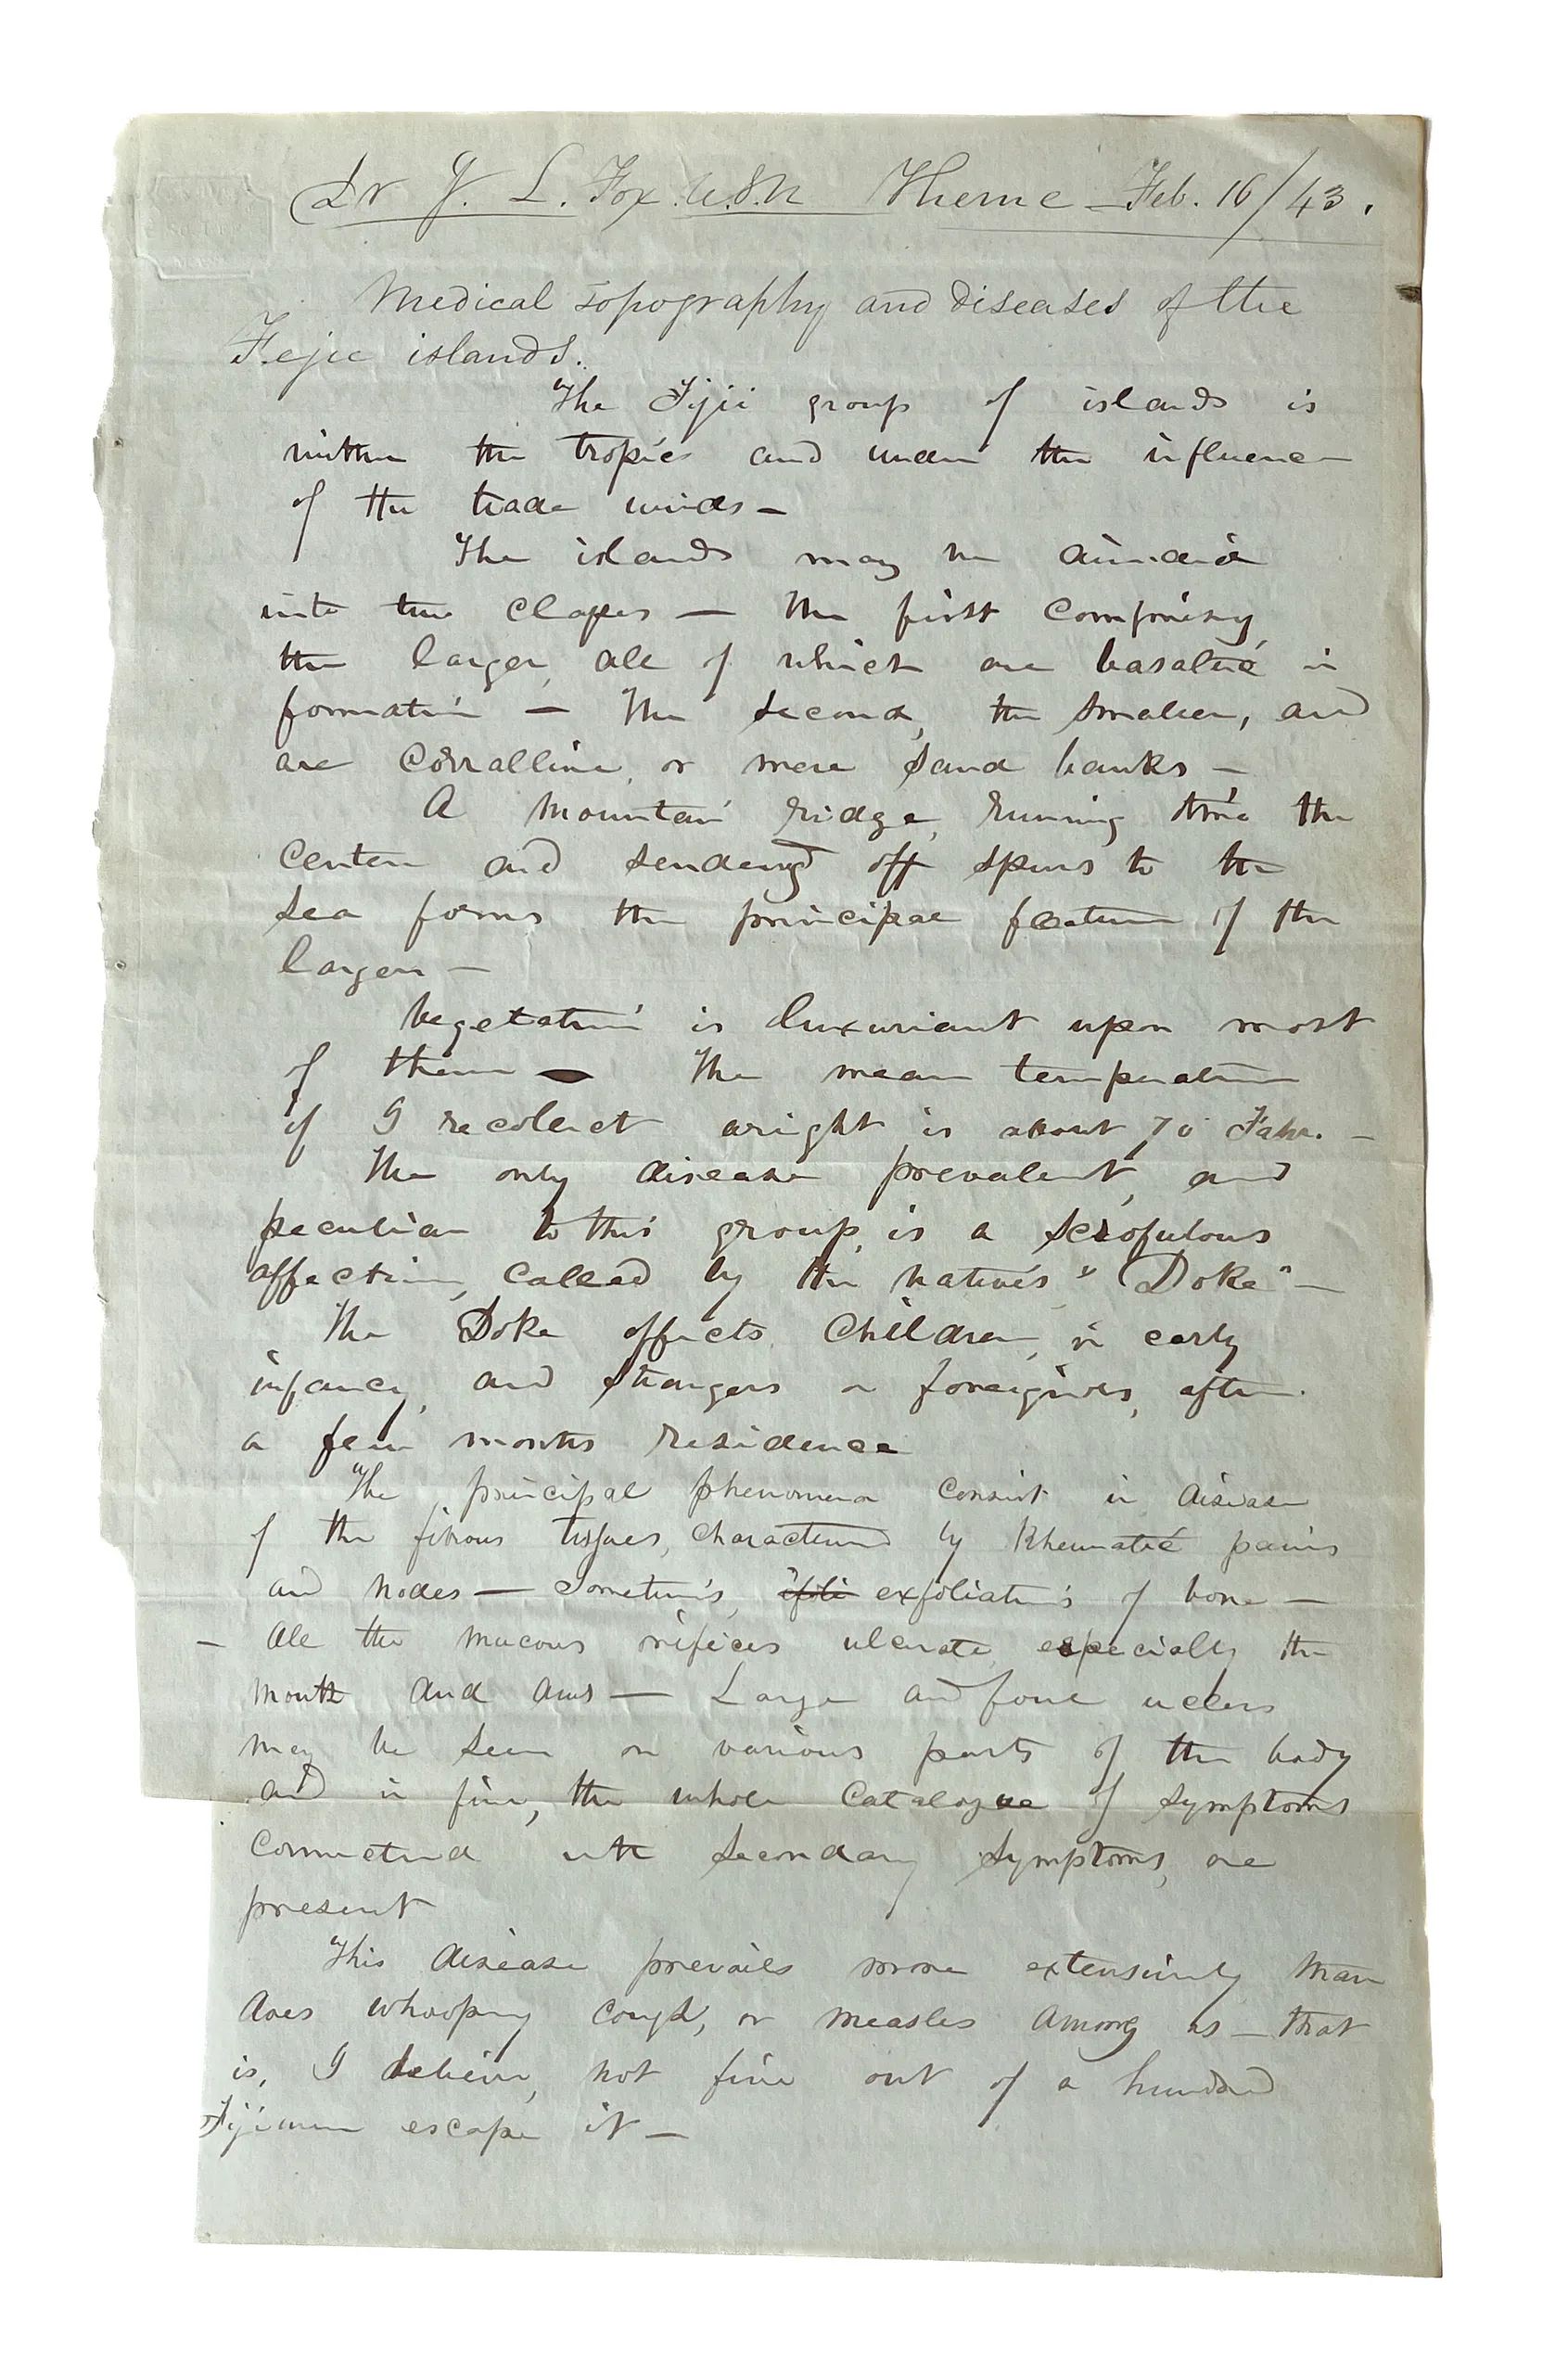 Dr J. L. Fox. U.S.N Theme - Feb. 16/43.
Medical Topography and Diseases of the
Fejee islands.
The Fijii group of islands is
within the tropics and under the influence
of the trade winds -
The islands may be divided
into two classes - the first comprising
the larger, all of which are basaltic in
formation - The second, the smaller, and
are corralline, or mere sand banks -
A mountain ridge, running thro' the
center and sending off spurs to the
sea forms the principal feature of the
larger -
Vegetation is luxuriant upon most
of them - The mean temperature
if I recollect aright is about 70° Fahr. -
The only disease prevalent, and
peculiar to this group, is a scrofulous
affection, called by the natives "Doke" -
The Doke affects children, in early
infancy, and strangers or foreigners, after
a few months residence
The principal phenomena consist in disease
of the fibrous tissues, characterised by Rheumatic pains
and nodes - sometimes, exfoliations of bone -
- All the mucous orifices ulcerate, especially the
mouth and anus - Large and foul ulcers
may be seen on various parts of the body
and in fine, the whole catalogue of symptoms
connected with secondary symptoms, are
present
This disease prevails more extensively than
does whooping cough, or measles among us - that
is, I believe, not five out of a hundred
Fijimen escape it -